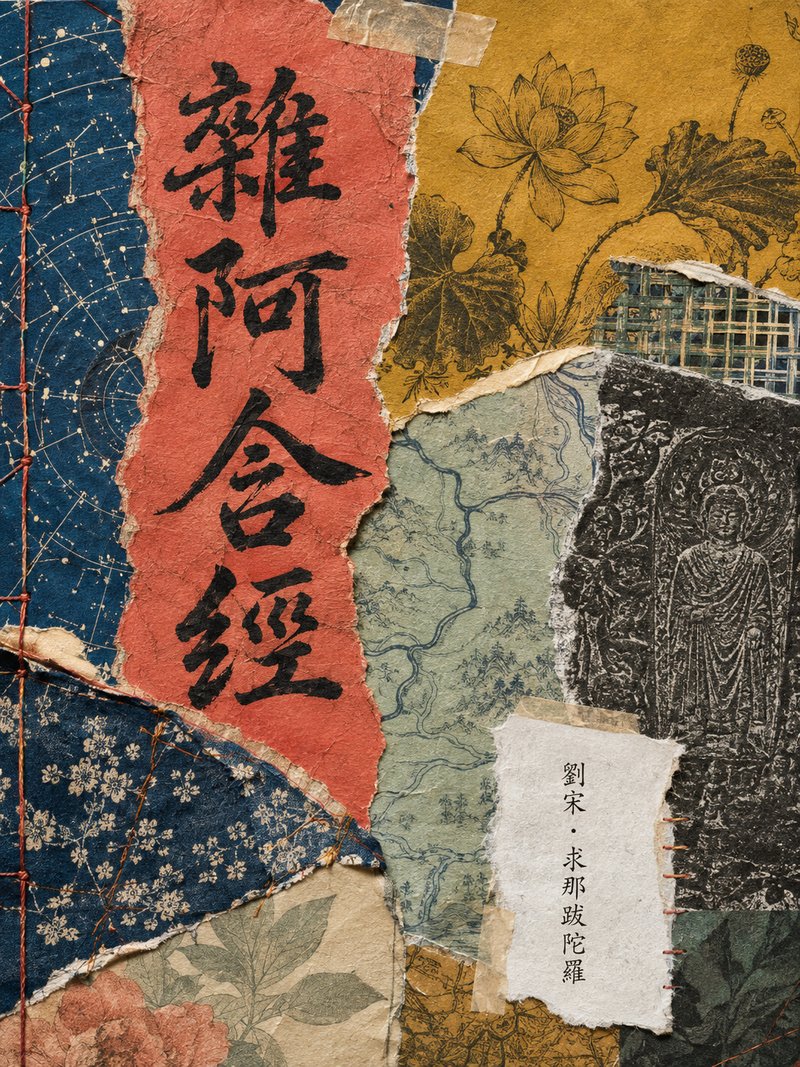 雜阿含經
劉宋・求那跋陀羅